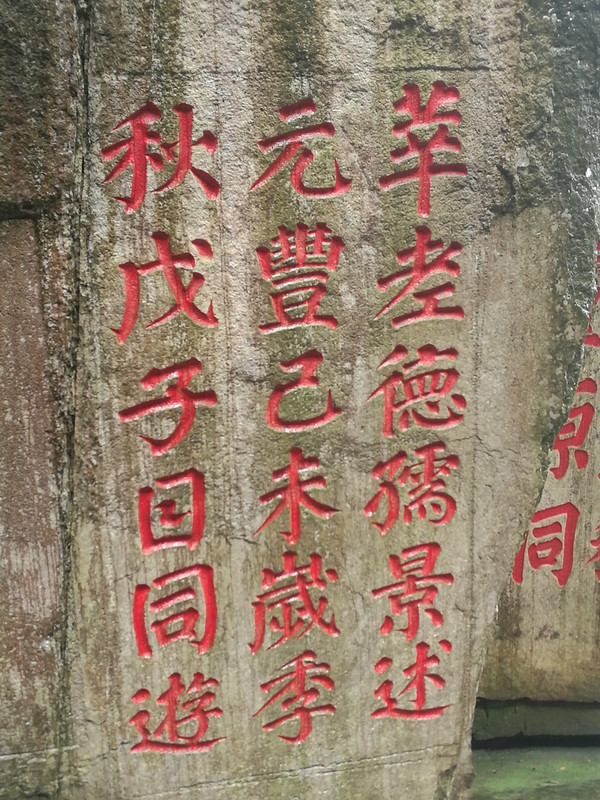 同
莘老德孺景述
元豐己未歲季
秋戊子日同遊